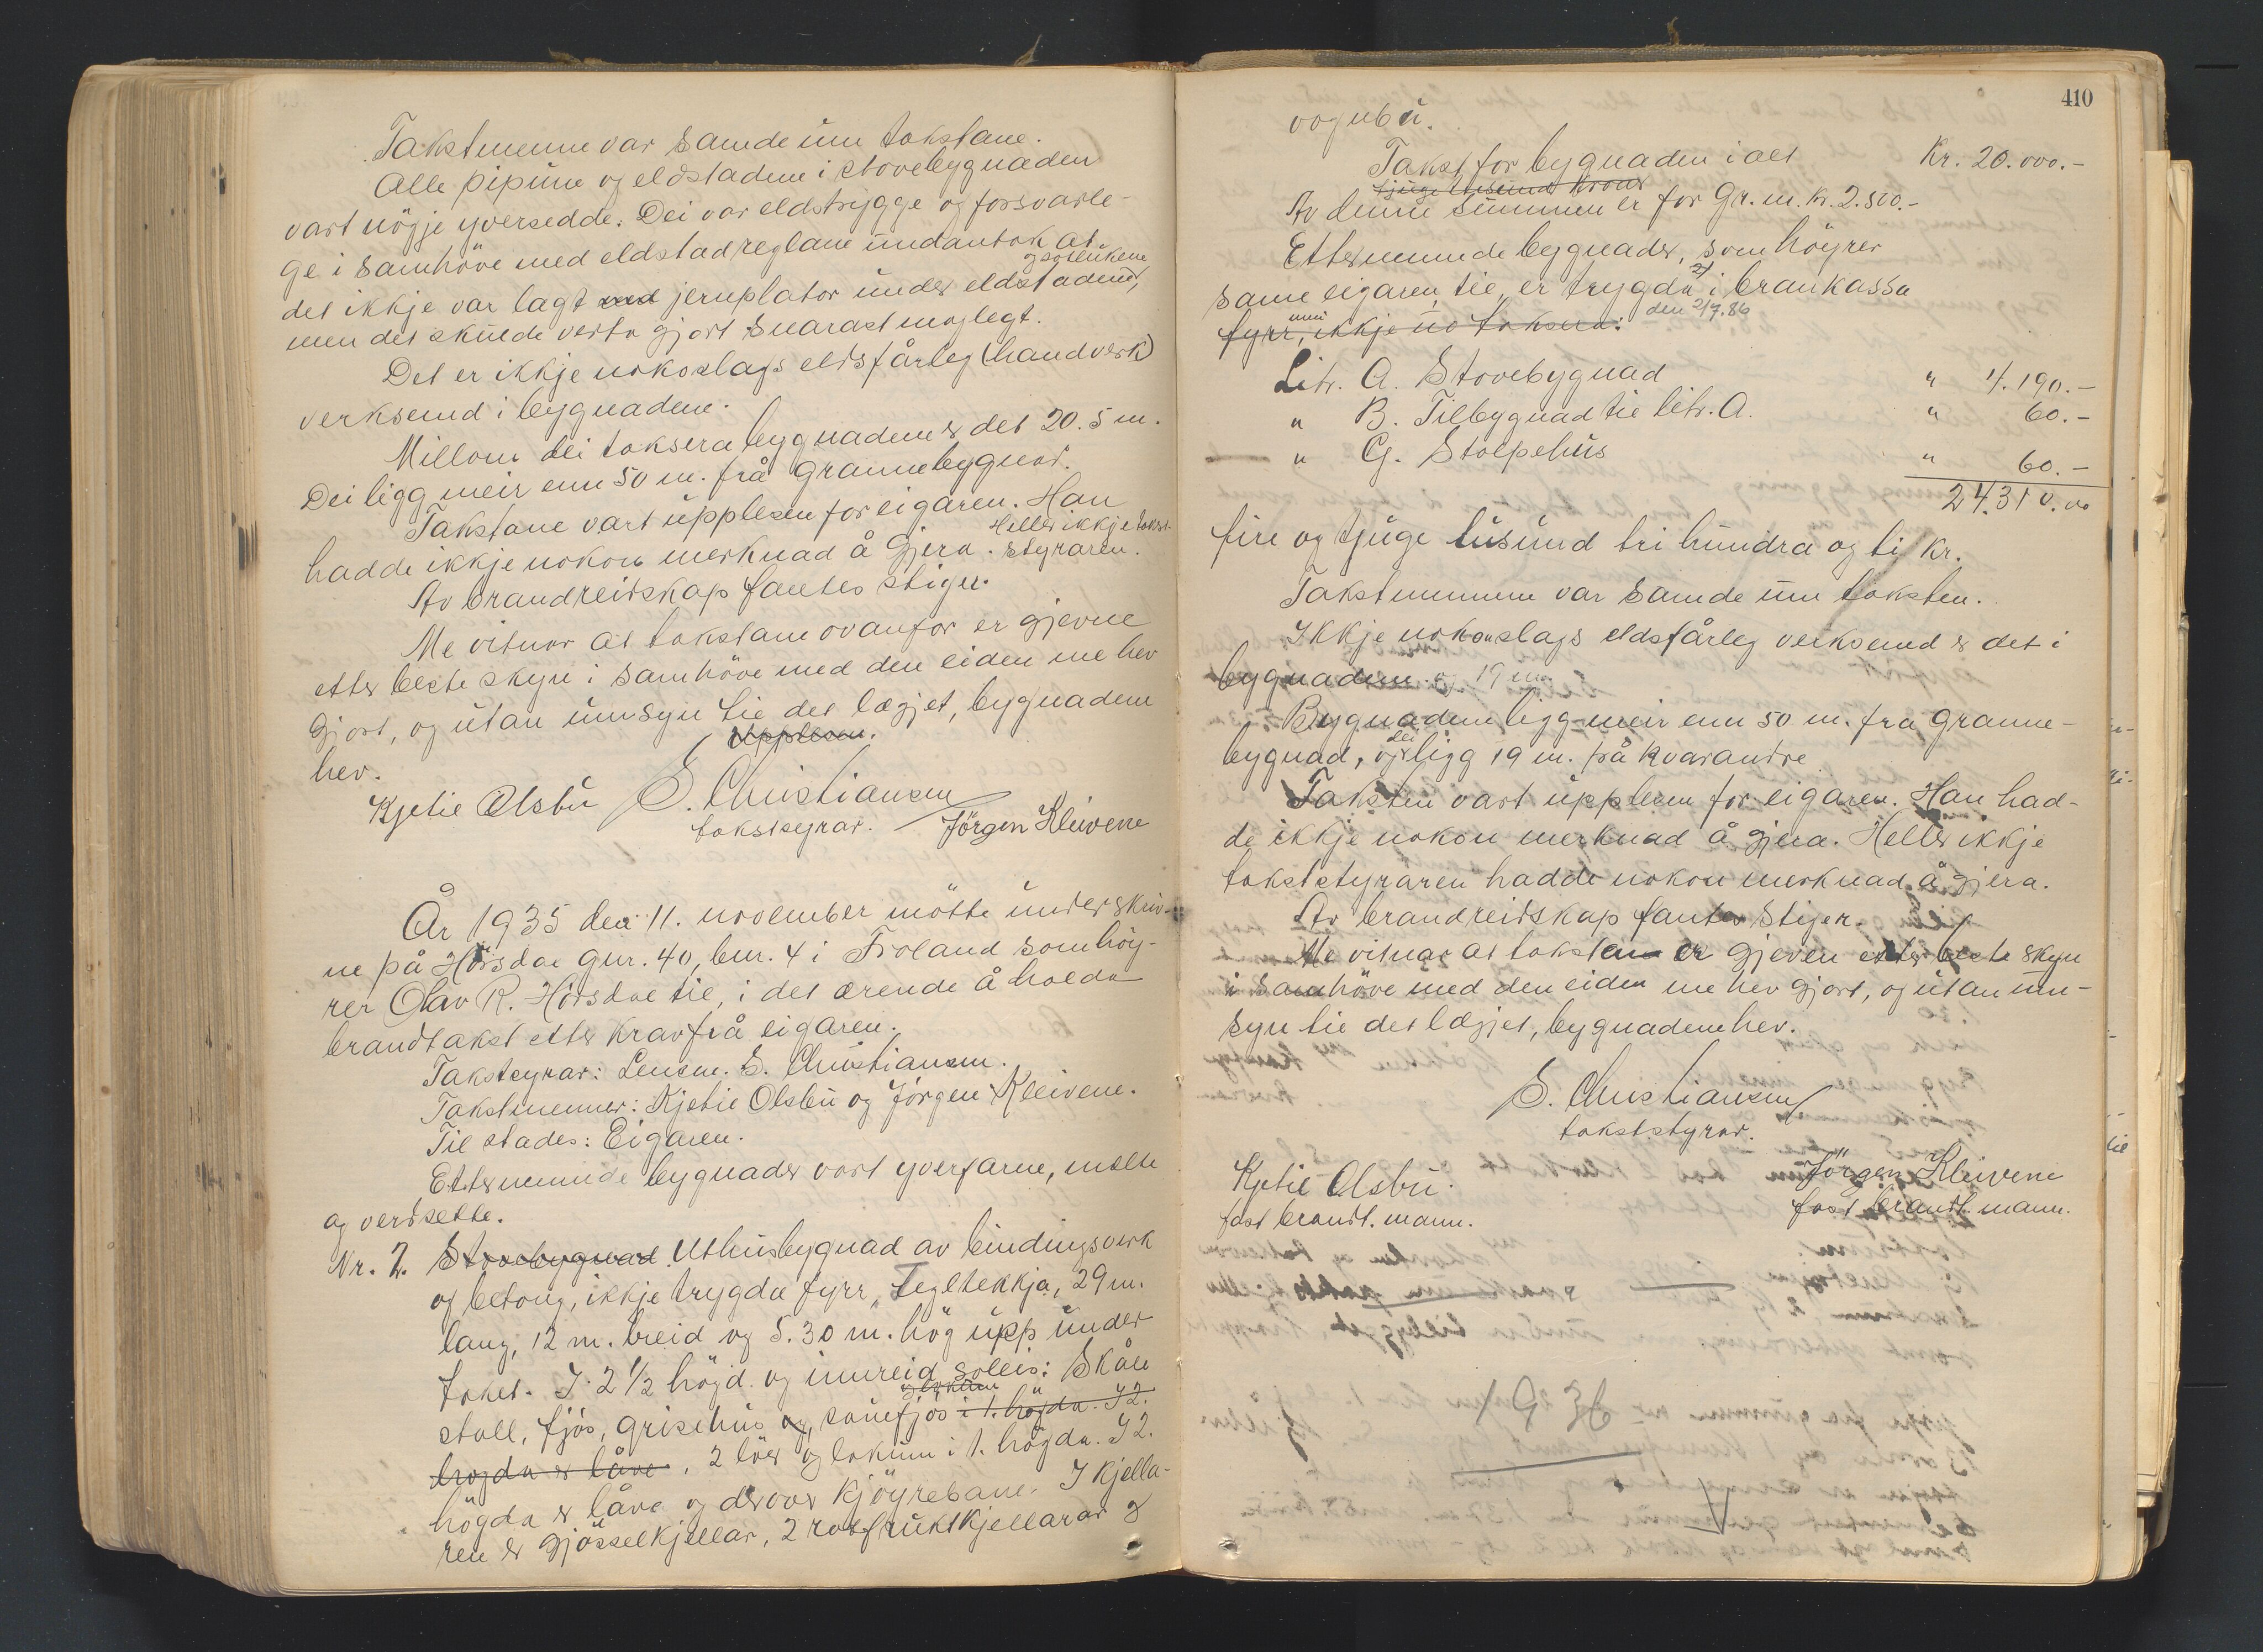 Takstmenne var samde um takstane.
Alle pipune og eldstadene i stovebygnaden
vart nögje yversedde. Dei var eldstrygge og forsvarle-
ge i samhöve med eldstadreglane undantak at
og sotlukene
det ikkje var lagt med jernplator under eldstadene,
men det skulde verta gjort snarast moglegt.
Det er ikkje nokoslags eldsfårleg (handverk)
verksemd i bygnadene.
Millom dei taksera bygnadene er det 20.5 m.
Dei ligg meir enn 50 m. frå grannebygnad.
Takstane vart upplesen for eigaren. Han
Heller ikkje takst-
hadde ikkje nokon merknad å gjera. styraren.
Av brandreidskap fantes stiger.
Me vitnar at takstane ovanfor er gjevne
etter beste skyn i samhöve med den eiden me hev
gjort, og utan umsyn til det lægjet, bygnadene
Upplesen.
hev.
Kjetil Olsbu S. Christiansen
takstsyrar. Jörgen Kleivene
År 1935 den 11. november mötte underskriv-
ne på Hörsdal gnr. 40, bnr. 4 i Froland som höy-
rer Olav R. Hörsdal til, i det ærende å halda
brandtakst etter krav frå eigaren.
Takstyrar: Lensm. S. Christiansen.
Takstmenner: Kjetil Olsbu og Jörgen Kleivene.
Til stades: Eigaren.
Etternemnde bygnader vart yverfarne, mælte
og verdsette.
Nr. 2. Stovebygnad. Uthusbygnad av bindingsverk
og betong, ikkje trygda fyrr, tegltekkja, 29 m.
lang, 12 m. breid og 5.30 m. hög upp under
taket. I 2 1/2 högd og innreid soleis: Skåle
og lokum
stall, fjös, grisehus og sauefjös i 1. högda. I 2.
högda er låve. , 2 löer og lokum i 1. högda. I 2.
högda er låve og derover kjöyrebane. I kjella-
ren er gjösselkjellar, 2 rotfruktkjellarar og
410
vognbu.
Takst for bygnaden i alt Kr. 20.000.-
tjuge tusund kroner
Av denne summen er for gr. m. kr. 2.500.-
Etternemnde bygnader, som höyrer
same eigaren til, er trygda i brankassa
den 2/7.86
fyrr, men ikkje no taksera:
Litr. A. Stovebygnad " 4.190.-
" B. Tilbygnad til litr. A. " 60.-
" G. Stolpehus " 60.-
24.310.00
fire og tjuge tusund tri hundra og ti kr.
Takstmennene var samde um taksten.
Ikkje nokonslags eldsfårleg verksemd er det i
bygnadene. og 19 m.
Bygnadene ligg meir enn 50 m. fra granne-
bygnad, og dei ligg 19 m. frå kvarandre
Taksten vart upplesen for eigaren. Han had-
de ikkje nokon merknad å gjera. Heller ikkje
takststyraren hadde nokon merknad å gjera.
Av brandreidskap fantes stiger.
Me vitnar at taksten er gjeven etter beste skyn
i samhöve med den eiden me hev gjort, og utan um-
syn til det lægjet, bygnadene hev.
S. Christiansen
takststyrar.
Kjetil Olsbu. Jörgen Kleivene
fast brandt. mann. fast brandt. mann.